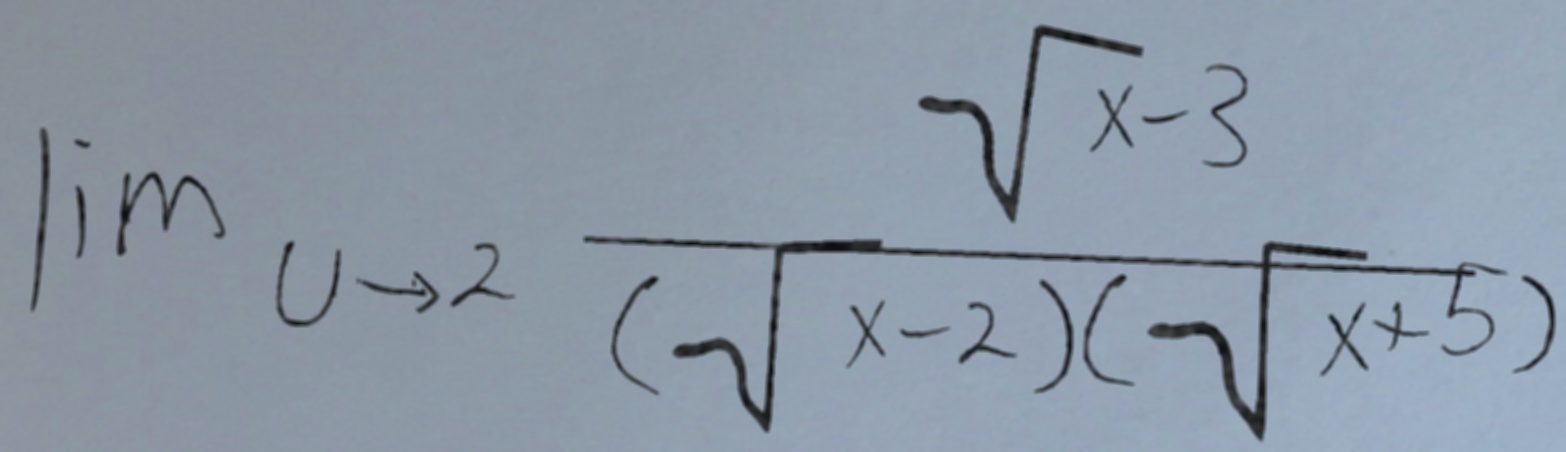 \lim_{U \to 2} \frac{\sqrt{x}-3}{(\sqrt{x}-2)(\sqrt{x}+5)}